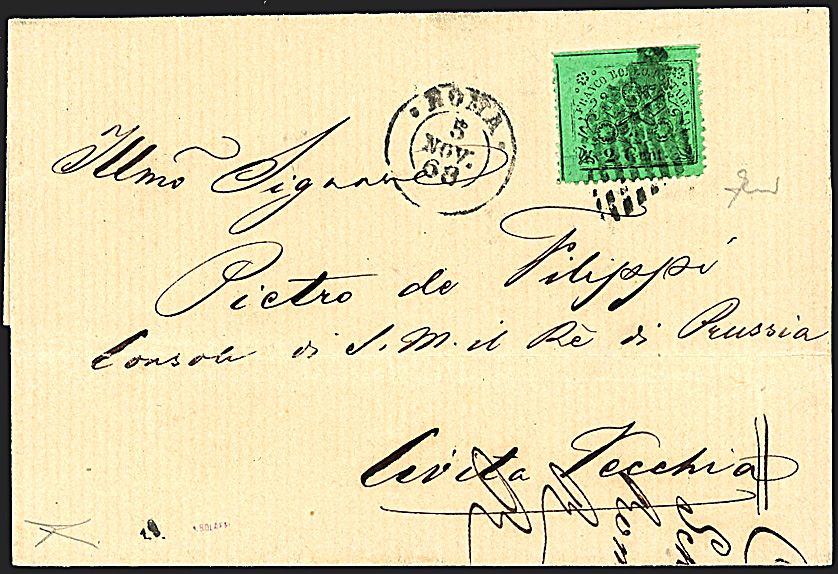 ROMA
5
NOV.
68
FRANCO BOLLO
2 Cent
Illmo Signore
Pietro de Filippi
Console di S. M. il Rè di Prussia
Civita Vecchia